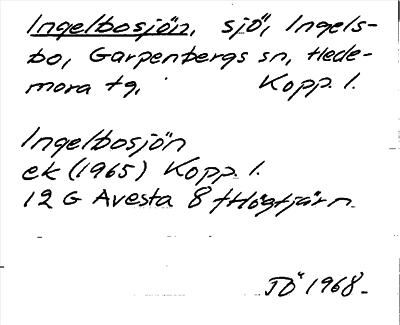 Ingelbosjön, sjö, Ingels-
bo, Garpenbergs sn, Hede-
mora tg, Kopp. l.
Ingelbosjön
ek (1965) Kopp. l.
12 G Avesta 8 f Högtjärn
TÖ 1968